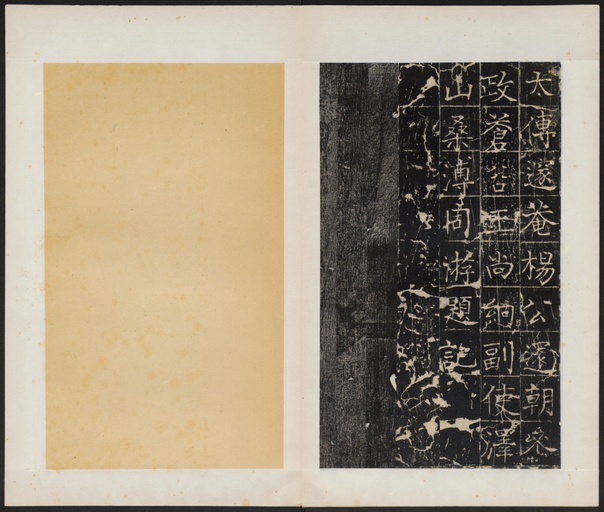 太傅邃菴楊公還朝參
政蒼谷王尚絅副使澤
山桑溥周游題記